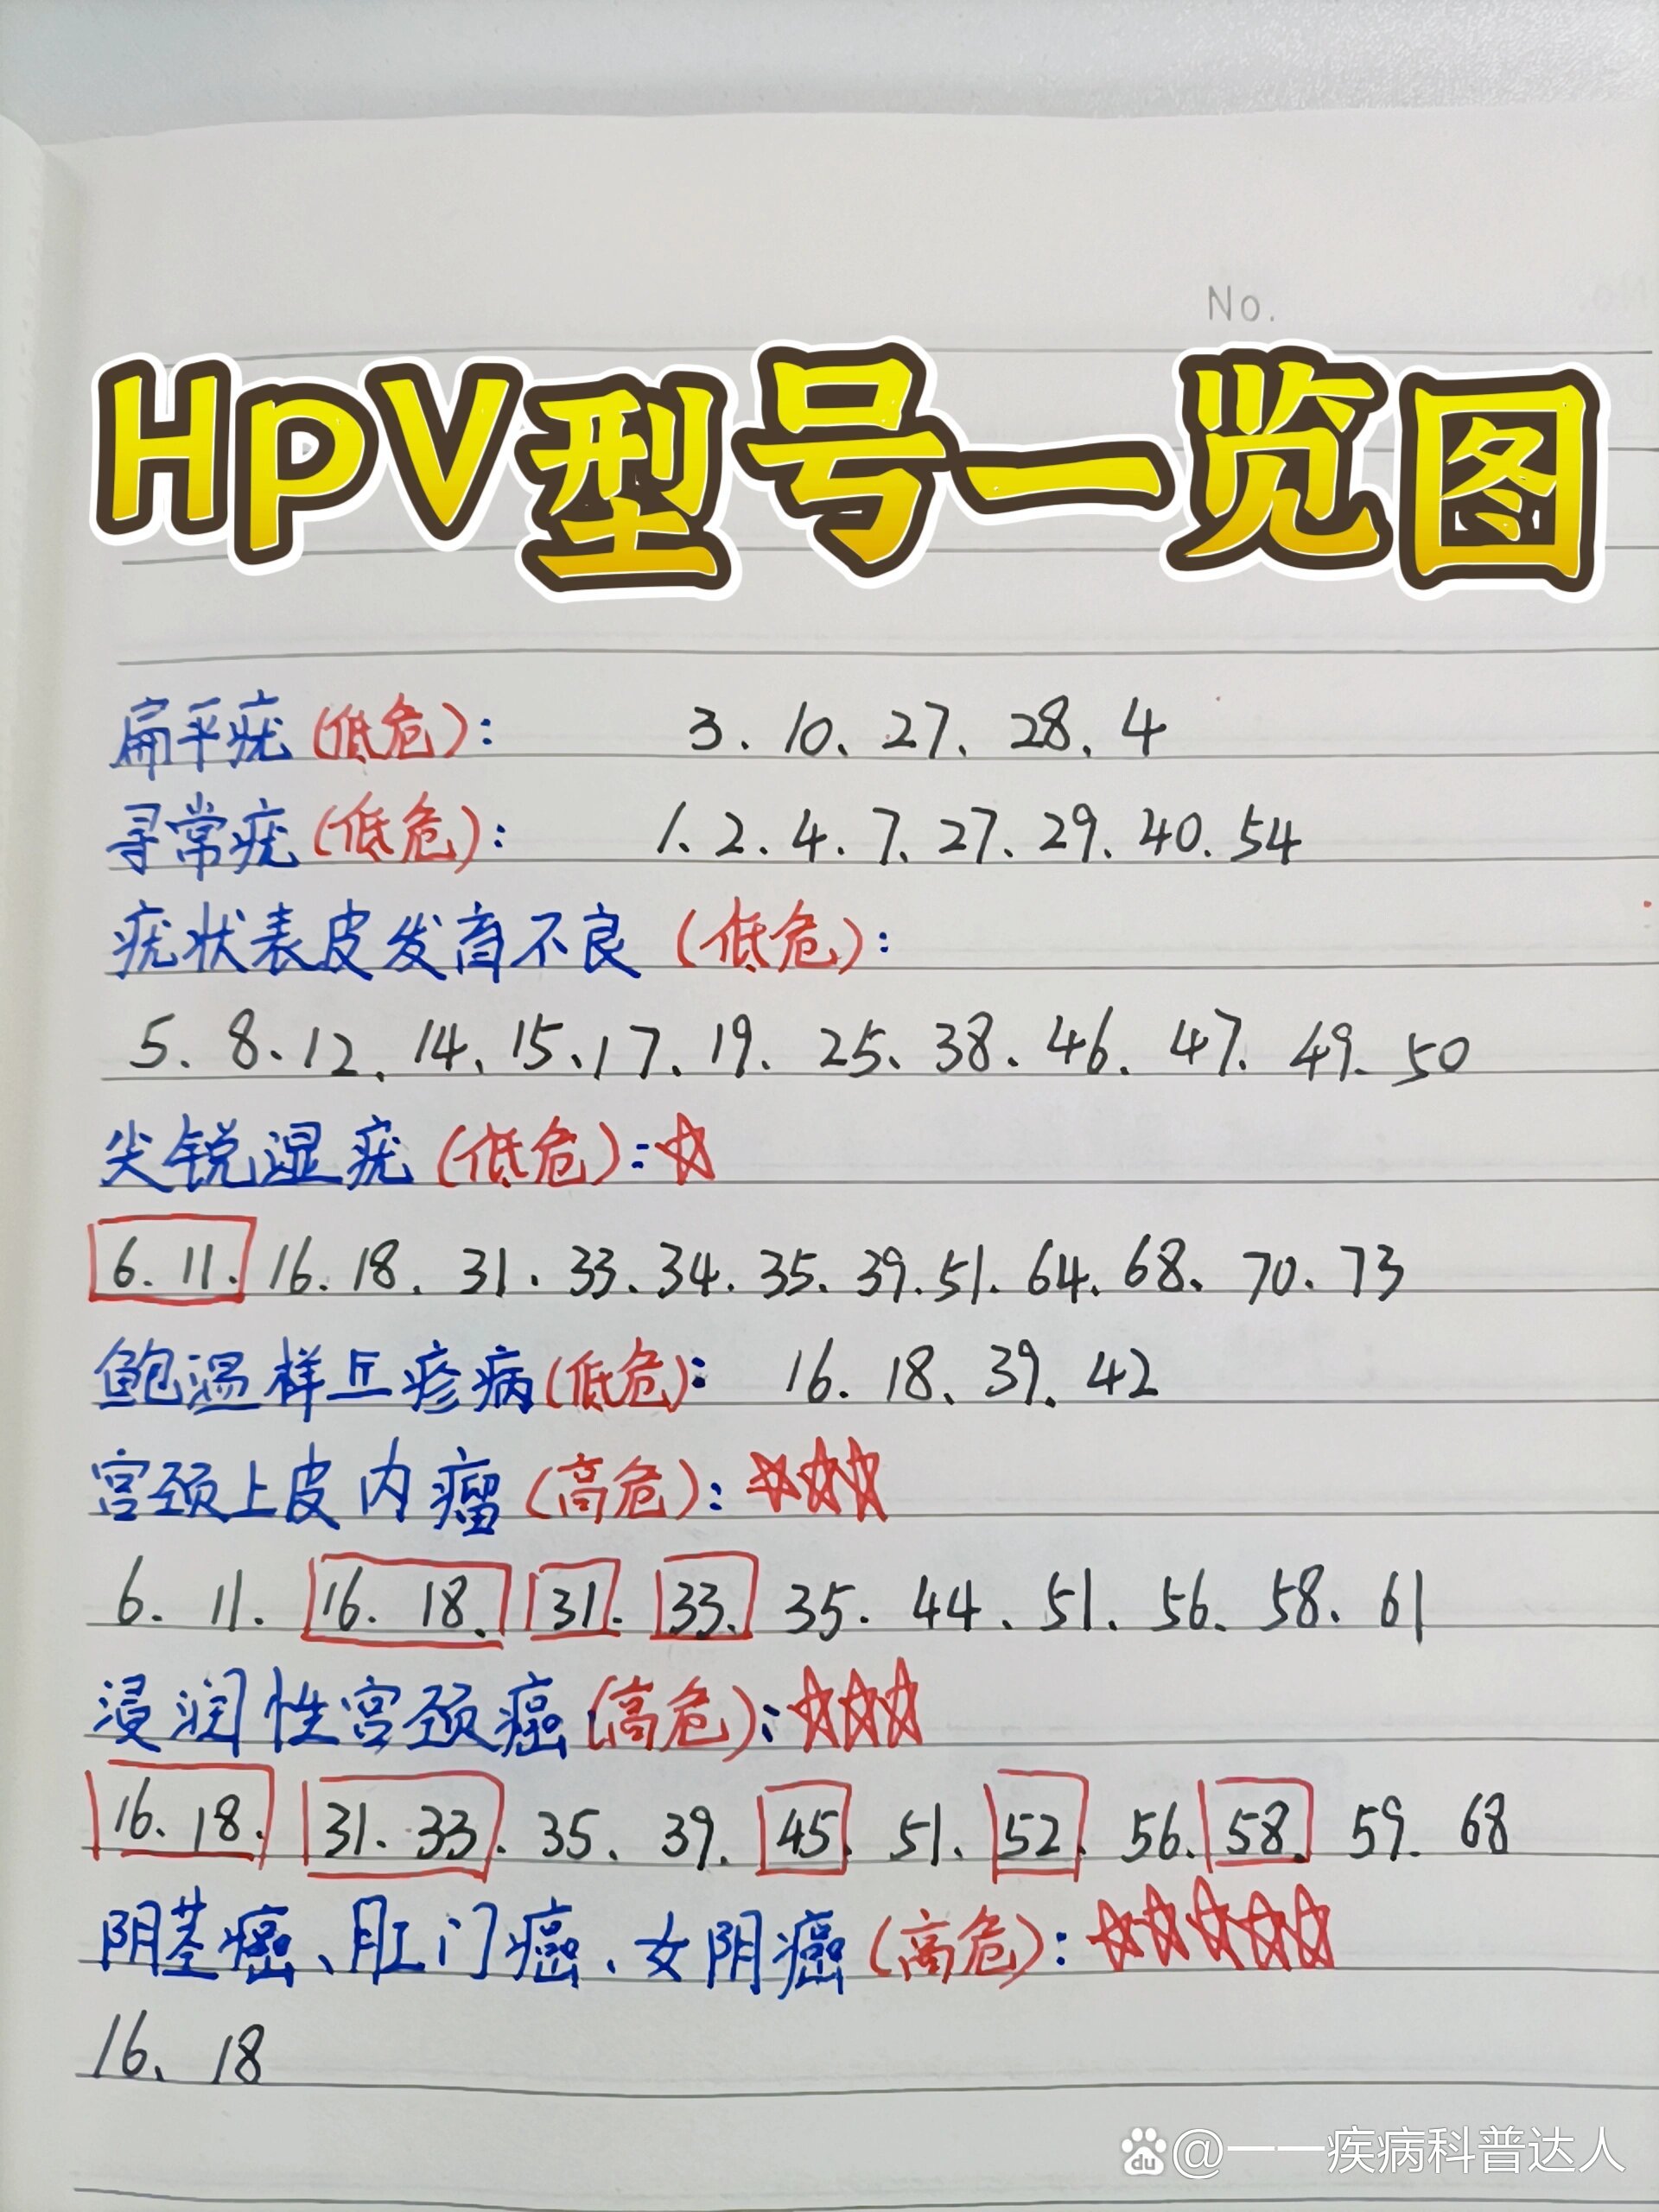 No.
HpV型号一览图
扁平疣(低危): 3.10、27、28、4
寻常疣(低危): 1.2.4.7.27.29.40.54
疣状表皮发育不良(低危):
5、8、12、14、15、17、19、25、38、46、47、49、50
尖锐湿疣(低危):☆
6.11.16.18.31.33.34.35.39.51.64.68.70.73
鲍温样丘疹病(低危): 16.18、39.42
宫颈上皮内瘤(高危):☆☆☆
6.11.16.18.31.33.35.44、51.56.58.61
浸润性宫颈癌(高危):☆☆☆
16.18.31.33.35、39.45.51、52.56.58.59.68
阴茎癌、肛门癌、女阴癌(高危):☆☆☆☆☆
16、18
du @一一疾病科普达人